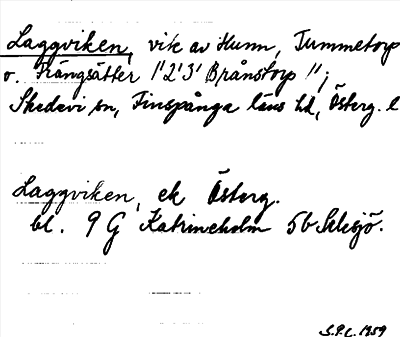 Laggviken, vik av Hunn, Tummetorp
o. Trängsätter 1'2'3' Brånstorp 1';
Skedevi sn, Finspånga läns hd, Österg. l
Laggviken, ek Österg.
bl. 9 G Katrineholm 5b
S.P.C. 1959